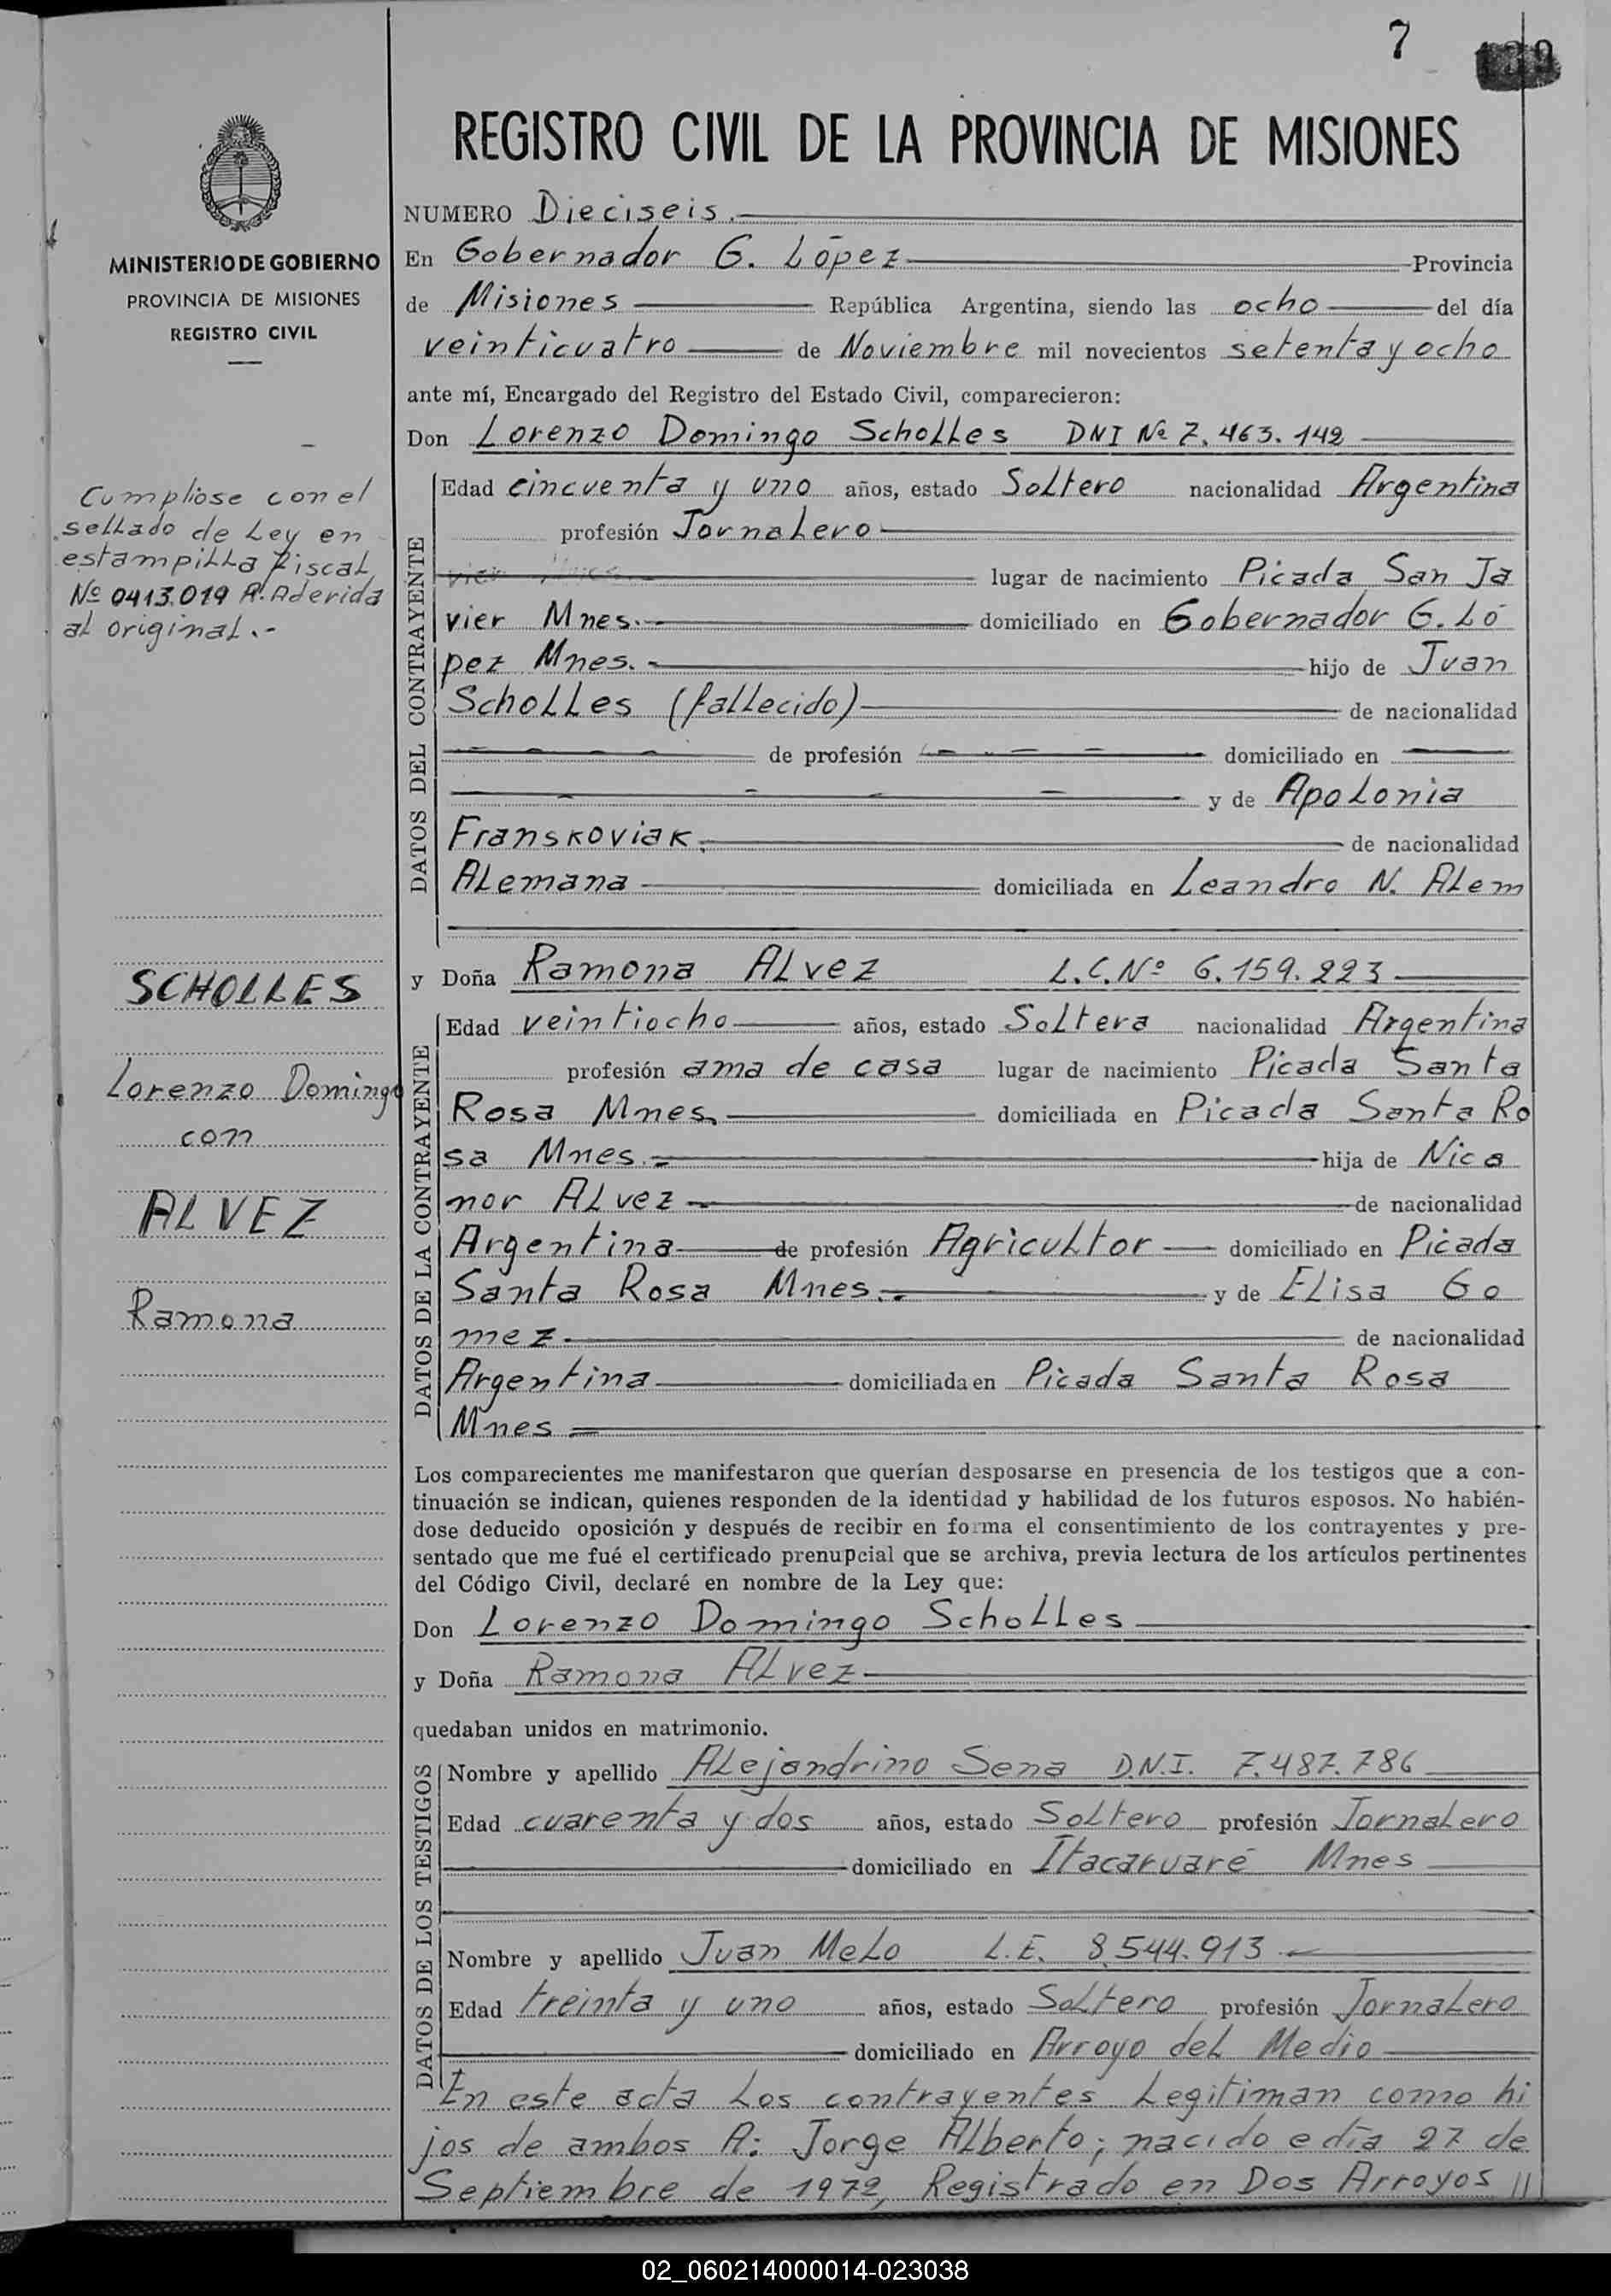 7
139
REGISTRO CIVIL DE LA PROVINCIA DE MISIONES
MINISTERIO DE GOBIERNO
PROVINCIA DE MISIONES
REGISTRO CIVIL
NUMERO Dieciseis.
En Gobernador G. López Provincia
de Misiones República Argentina, siendo las ocho del día
veinticuatro de Noviembre mil novecientos setenta y ocho
ante mí, Encargado del Registro del Estado Civil, comparecieron:
Don Lorenzo Domingo Scholles DNI Nº 7.463.142
Cumpliose con el
sellado de Ley en
estampilla fiscal
Nº 0413.019 A. Aderida
al original.-
DATOS DEL CONTRAYENTE
Edad cincuenta y uno años, estado Soltero nacionalidad Argentina
profesión Jornalero
lugar de nacimiento Picada San Ja
vier Mnes. domiciliado en Gobernador G. Ló
pez Mnes. hijo de Juan
Scholles (fallecido) de nacionalidad
de profesión domiciliado en
y de Apolonia
Franskoviak. de nacionalidad
Alemana domiciliada en Leandro N. Alem
SCHOLLES
Lorenzo Domingo
con
ALVEZ
Ramona
y Doña Ramona Alvez L.C. Nº 6.159.223
DATOS DE LA CONTRAYENTE
Edad veintiocho años, estado Soltera nacionalidad Argentina
profesión ama de casa lugar de nacimiento Picada Santa
Rosa Mnes. domiciliada en Picada Santa Ro
sa Mnes. hija de Nica
nor Alvez de nacionalidad
Argentina de profesión Agricultor domiciliado en Picada
Santa Rosa Mnes. y de Elisa Go
mez. de nacionalidad
Argentina domiciliada en Picada Santa Rosa
Mnes
Los comparecientes me manifestaron que querían desposarse en presencia de los testigos que a con-
tinuación se indican, quienes responden de la identidad y habilidad de los futuros esposos. No habién-
dose deducido oposición y después de recibir en forma el consentimiento de los contrayentes y pre-
sentado que me fué el certificado prenupcial que se archiva, previa lectura de los artículos pertinentes
del Código Civil, declaré en nombre de la Ley que:
Don Lorenzo Domingo Scholles
y Doña Ramona Alvez
quedaban unidos en matrimonio.
DATOS DE LOS TESTIGOS
Nombre y apellido Alejandrino Sena D.N.I. 7.487.786
Edad cuarenta y dos años, estado Soltero profesión Jornalero
domiciliado en Itacaruaré Mnes
Nombre y apellido Juan Melo L.E. 8.544.913
Edad treinta y uno años, estado Soltero profesión Jornalero
domiciliado en Arroyo del Medio
En este acta los contrayentes legitiman como hi
jos de ambos A: Jorge Alberto; nacido e día 27 de
Septiembre de 1972, Registrado en Dos Arroyos //
02_060214000014-023038